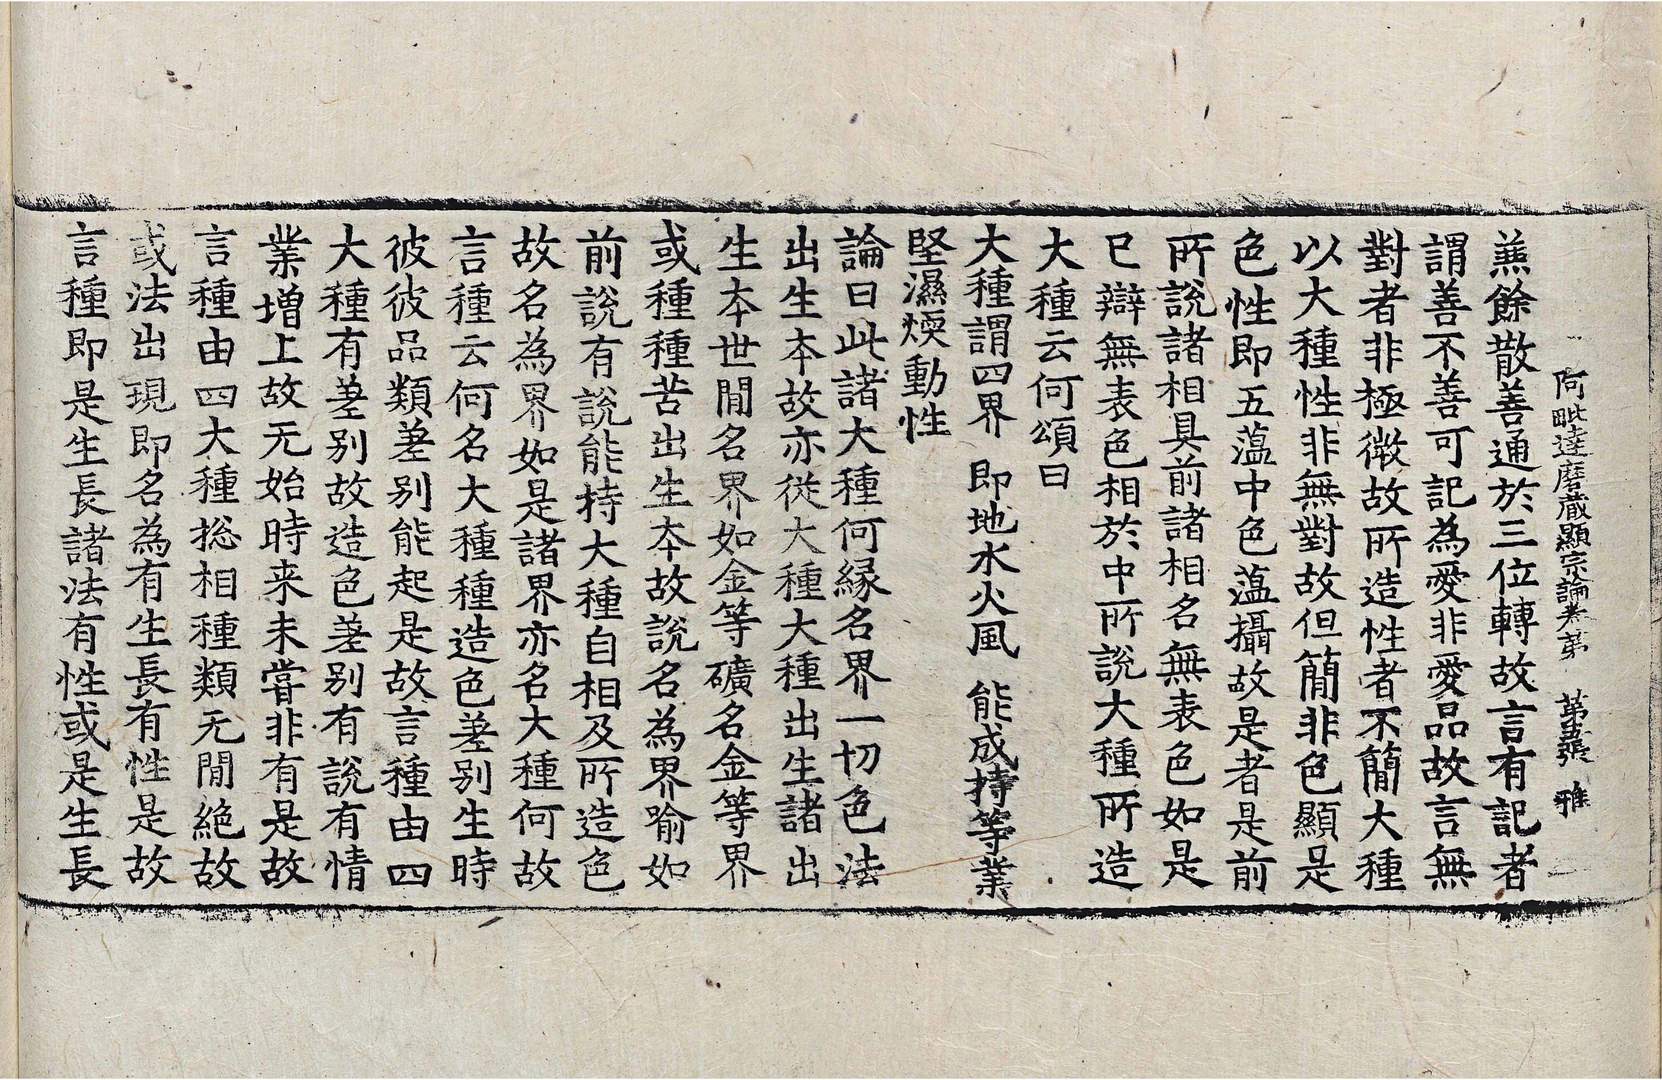 阿毗達磨藏顯宗論卷第 第五張 雅
無餘散善通於三位轉故言有記者
謂善不善可記為愛非愛品故言無
對者非極微故所造性者不簡大種
以大種性非無對故但簡非色顯是
色性即五薀中色薀攝故是者是前
所說諸相具前諸相名無表色如是
已辯無表色相於中所說大種所造
大種云何頌曰
大種謂四界 即地水火風 能成持等業
堅濕煗動性
論曰此諸大種何緣名界一切色法
出生本故亦從大種大種出生諸出
生夲世閒名界如金等礦名金等界
或種種苦出生夲故說名為界喻如
前說有說能持大種自相及所造色
故名為界如是諸界亦名大種何故
言種云何名大種種造色差別生時
彼彼品類差別能起是故言種由四
大種有差別故造色差別有說有情
業增上故无始時来未甞非有是故
言種由四大種捴相種類无閒絕故
或法出現即名為有生長有性是故
言種即是生長諸法有性或是生長